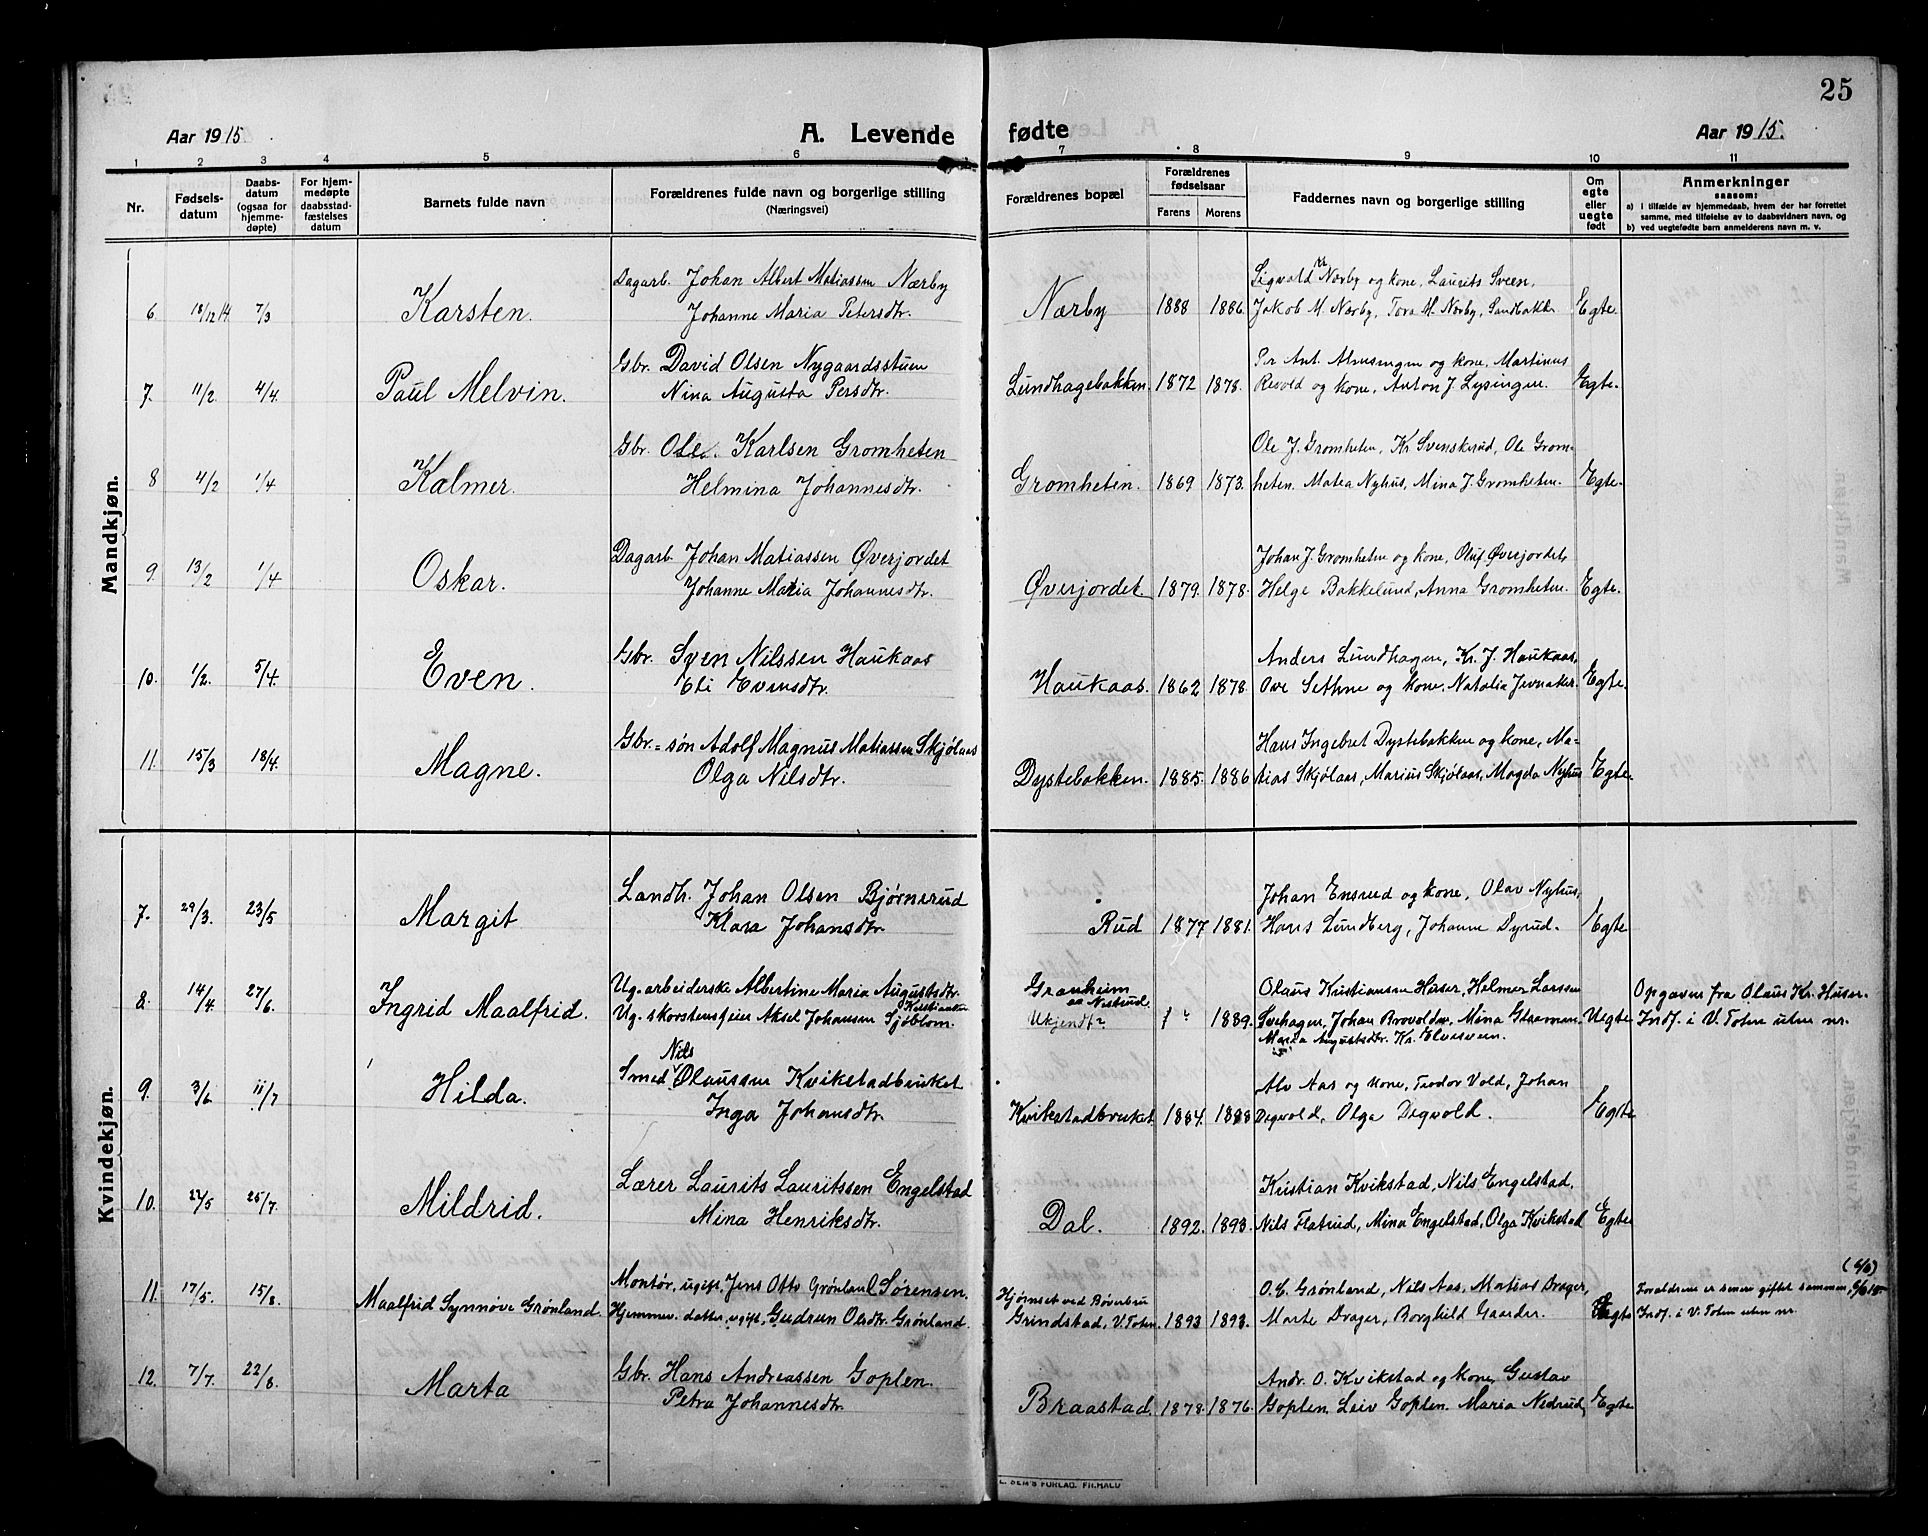 25
Aar 1915.
A. Levende fødte
Aar 1915.
1 2 3 4 5 6 7 8 9 10 11
Nr.
Fødsels-
datum
Daabs-
datum
(ogsaa for
hjemme-
døpte)
For hjem-
medøpte
daabsstad-
fæstelses
datum
Barnets fulde navn
Forældrenes fulde navn og borgerlige stilling
(Næringsvei)
Forældrenes bopæl
Forældrenes
fødselsaar
Farens Morens
Faddernes navn og borgerlige stilling
Om
egte
eller
uegte
født
Anmerkninger
saasom:
a) i tilfælde av hjemmedaab, hvem der har forrettet
samme, med tilføielse av to daabsvidners navn, og
b) ved uegtefødte barn anmelderens navn m. v.
Mandkjøn.
Dagarb. Johan Albert Matiassen Nærby
Sigvald M Nærby og kone, Laurits Sveen,
6 18/12 14 7/3 Karsten. Johanne Maria Petersdtr. Nærby 1888 1886. Jakob M. Nærby, Tora M. Nærby, Sandbakk Egte.
Gbr. David Olsen Nygaardsstuen
Per Ant. Alvusingen og kone, Martinus
7. 11/2. 4/4. Paul Melvin. Nina Augusta Persdtr. Lundhagebakken. 1872 1878. Resvold og kone, Anton J. Lysingen. Egte.
Gbr. Ole. Karlsen Gromheten
Ole J. Gromheten, Kr. Svenskerud, Ole Grom-
8 4/2 1/4 Kalmer. Helmina Johannesdtr. Gromheten. 1869 1873. heten. Matea Nyhus, Mina J. Gromheten. Egte.
Dagarb. Johan Matiassen Øverjordet
Johan J. Gromheten og kone, Oluf Øverjordet,
9. 13/2 1/4 Oskar. Johanne Maria Johannesdtr. Øverjordet. 1879. 1878. Helge Bakkelund, Anna Gromheten. Egte.
Gbr. Sven Nilssen Haukaas
Anders Lundhagen, Kr. J. Haukaas,
10. 1/2. 5/4. Even. Eli Evensdtr. Haukaas. 1862 1878. Ove Sethne og kone, Natalia Jevnaker. Egte.
Gbr.=søn Adolf Magnus Matiassen Skjølaas
Hans Ingebret Dystebakken og kone, Ma-
11. 15/3 18/4. Magne. Olga Nilsdtr. Dystebakken. 1885. 1886 tias Skjølaas, Marius Skjølaas, Magda Nyhus Egte.
Kvindekjøn.
Landh. Johan Olsen Bjørnerud
Johan Ensrud og kone, Olav Nyhus,
7. 29/3. 23/5 Margit Klara Johansdtr. Rud 1877 1881. Hans Lundberg, Johanne Dyrud. Egte
8. 14/4. 27/6. Ingrid Maalfrid. Ug. arbeiderske Albertine Maria Augustsdtr. Granheim
Olaus Kristiansen Huser, Halmer Larssen
Opgaven fra Olaus Kr. Huser.
Ug. skorstensfeier Aksel Johansen Sjøblom. Ukjendt? ? 1889. Svehagen, Johan Brovolden, Mina Glæmen. Uegte Indf. i V. Toten uten nr.
Maria Augustsdtr. Kr. Elvesveen.
Smed Nils Olaussen Kvikstadbruket
Alv Aas og kone, Teodor Vold, Johan
9. 3/6 11/7 Hilda. Inga Johansdtr. Kvikstadbruket. 1884. 1888 Degvold, Olga Degvold. Egte
Lærer Laurits Lauritssen Engelstad
Kristian Kvikstad, Nils Engelstad,
10. 24/5 25/7. Mildrid. Mina Henriksdtr. Dal. 1892. 1893. Nils Flatrud, Mina Engelstad, Olga Kvikstad Egte
Montør, ugift, Jens Otto Grønland Sørensen. Hjørnset ved Bøverbru
O. E. Grønland, Nils Aas, Matias Drager,
Forældrene er senere giftet sammen,
11. 17/5. 15/8. Maalfrid Synnøve Grønland. Hjemmev. datter, ugift, Gudrun Olsdtr. Grønland. Grindstad, V. Toten. 1893 1893. Marte Drager, Borghild Gaarder. Indf. i V. Toten uten nr.
Gbr. Hans Andreassen Goplen.
Andr. O. Kvikstad og kone, Gustav
12. 7/7. 22/8. Marta Petra Johannesdtr. Braastad. 1878. 1876. Goplen, Leiv Goplen. Maria Nedrud, Egte